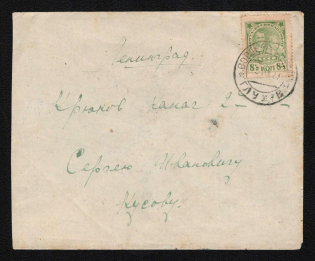 Ленинград.
Крюков канал
Сергею Ивановичу
Кусову.